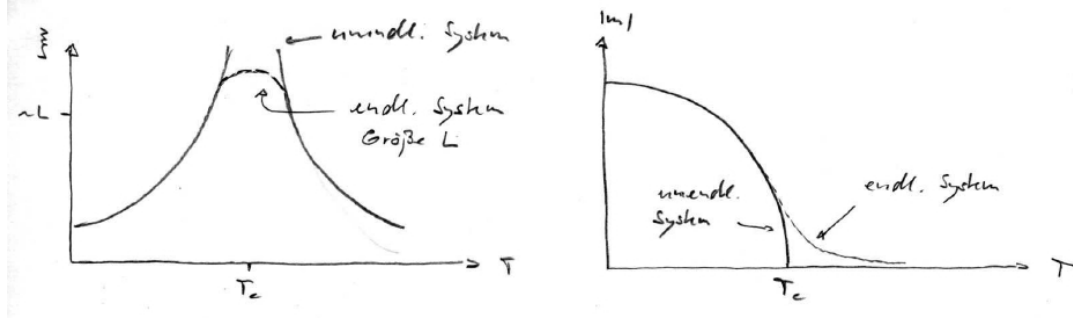 unendl. System
~L
endl. System
Größe L
T
T_c
|m|
unendl.
System
endl. System
T
T_c